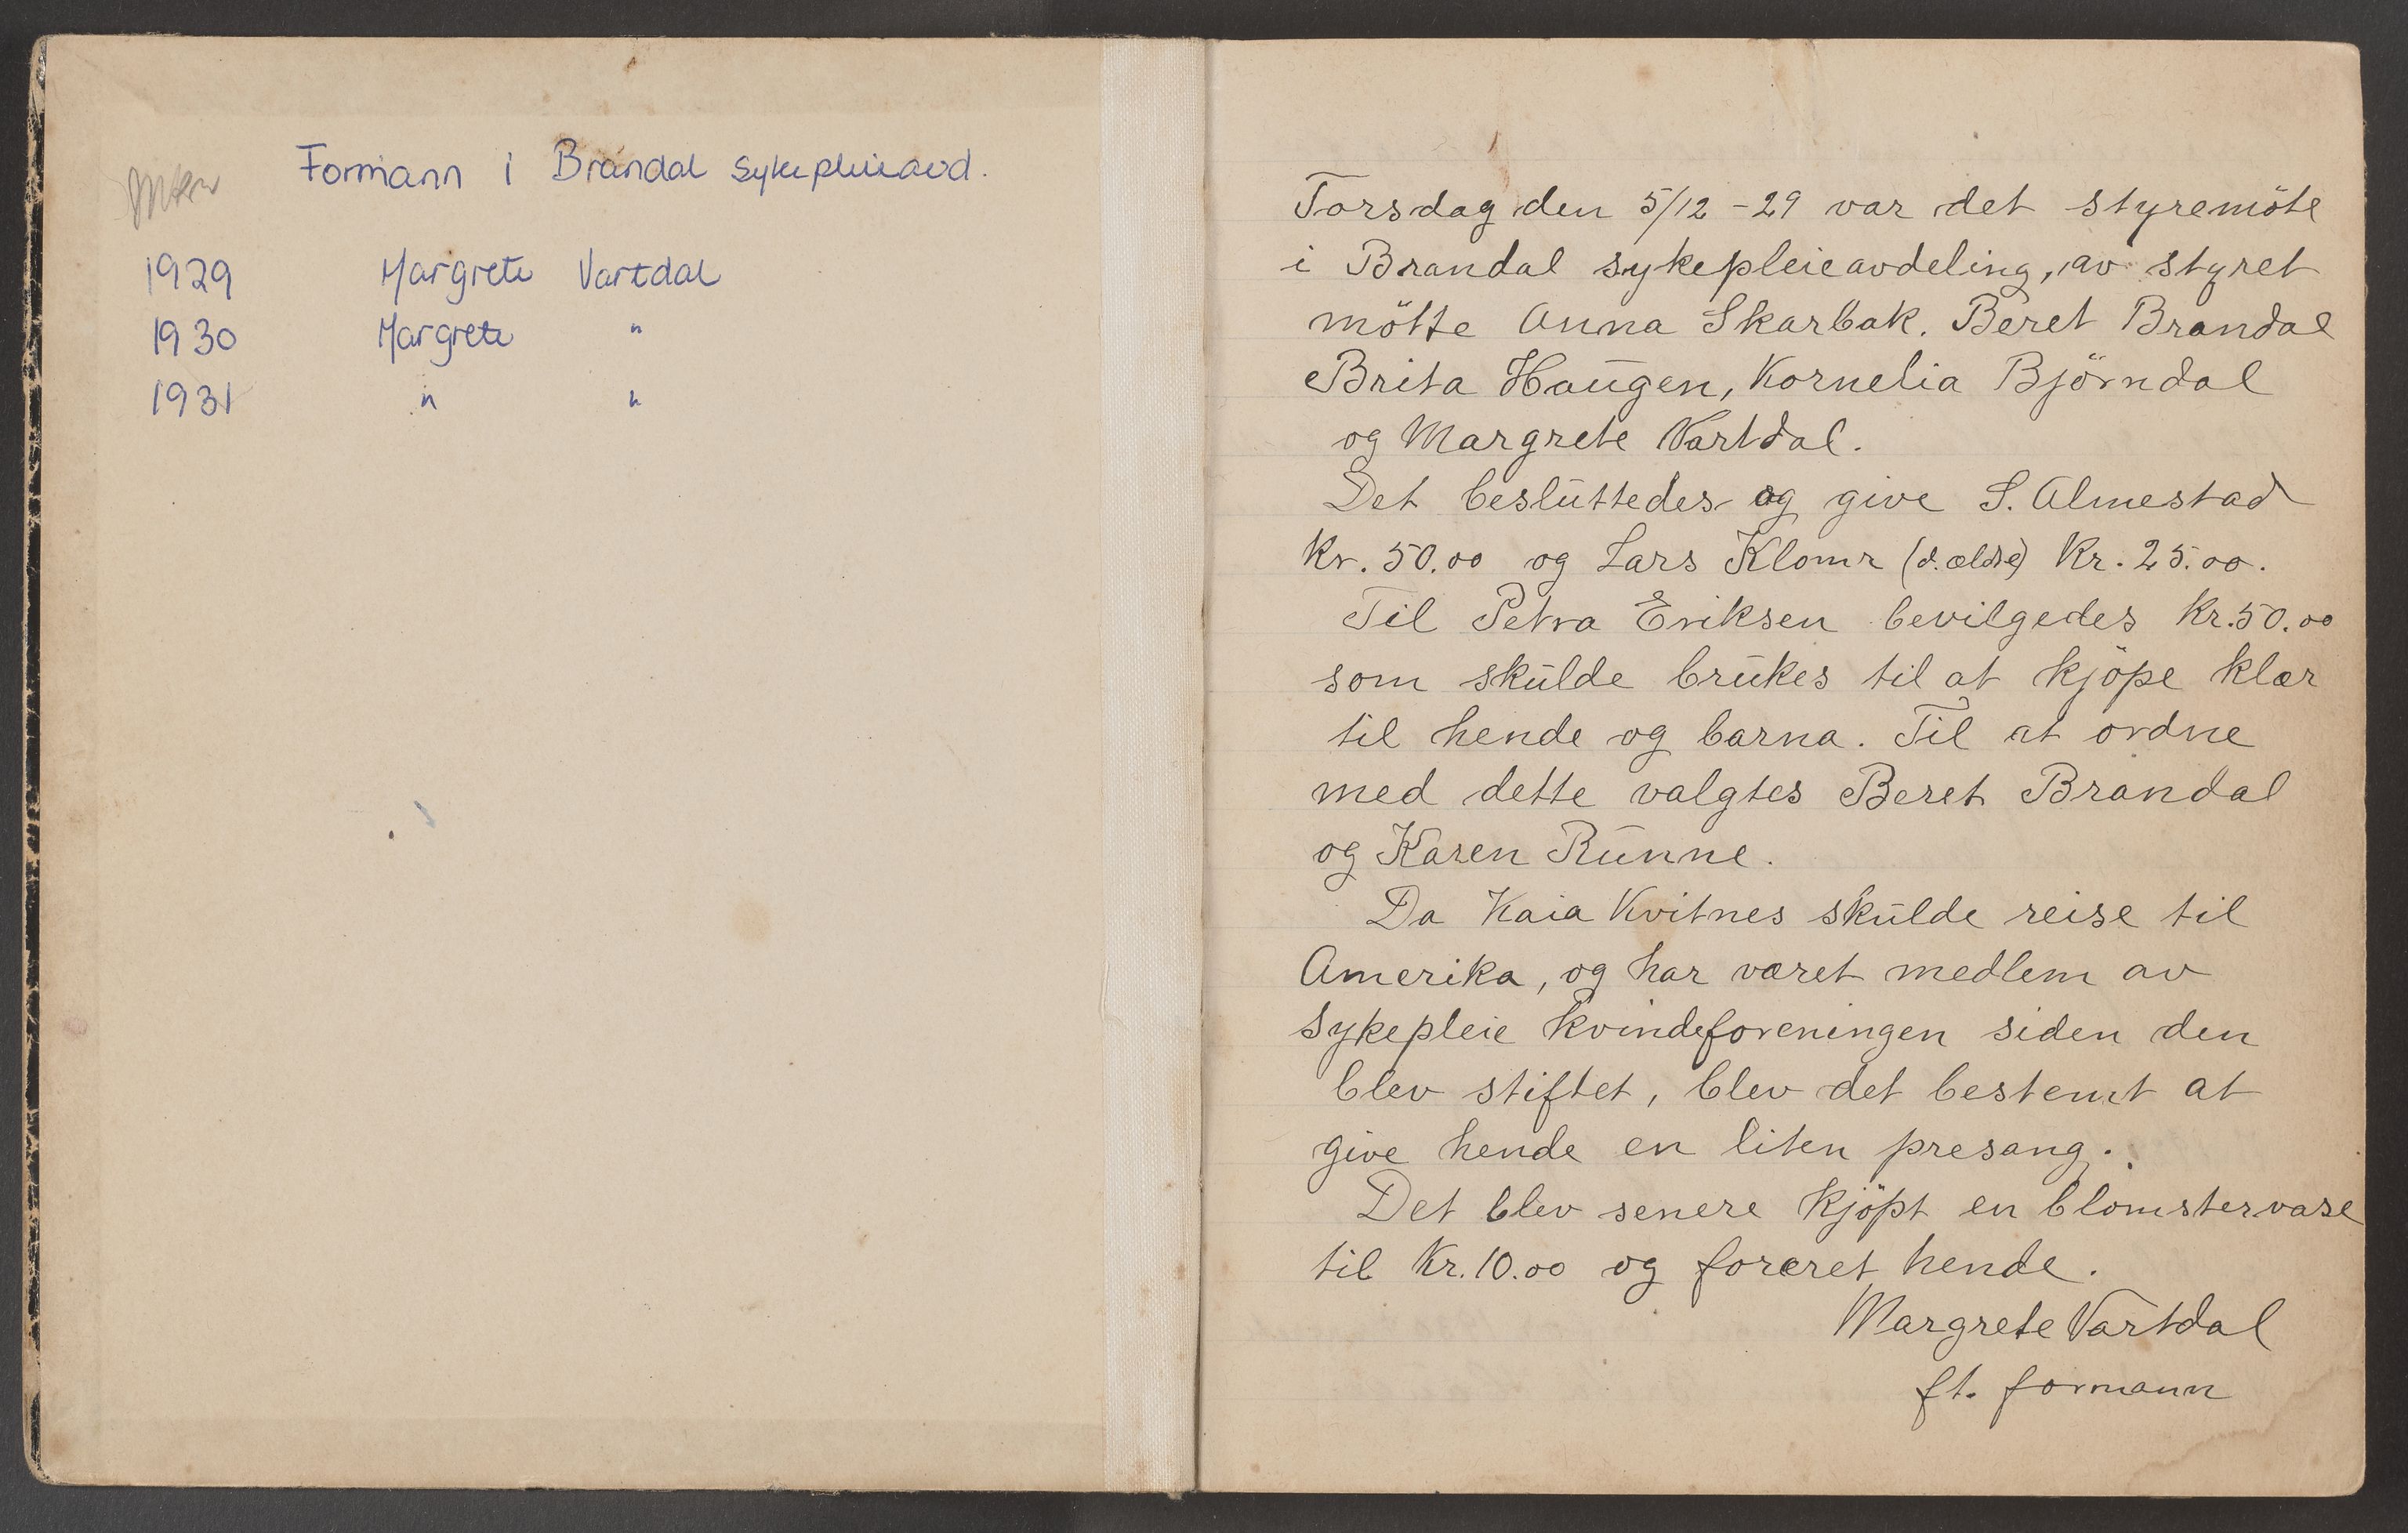 Formann i Brandal sykepleieavd.
1929 Margrete Vartdal
1930 Margrete "
1931 " "
Torsdag den 5/12 - 29 var det styremöte
i Brandal sykepleieavdeling, av styret
mötte Anna Skarbak. Beret Brandal
Brita Haugen, Kornelia Björndal
og Margrete Vartdal.
Det besluttedes og give S. Almestad
Kr. 50.00 og Lars Klomr (d. ældre) Kr. 25.00.
Til Petra Eriksen bevilgedes Kr. 50.00
som skulde brukes til at kjöpe klær
til hende og barna. Til at ordne
med dette valgtes Beret Brandal
og Karen Runne.
Da Kaia Kvitnes skulde reise til
Amerika, og har været medlem av
Sykepleie kvindeforeningen siden den
blev stiftet, blev det bestemt at
give hende en liten presang.
Det blev senere kjöpt en blomstervase
til Kr. 10.00 og foræret hende.
Margrete Vartdal
ft. formann